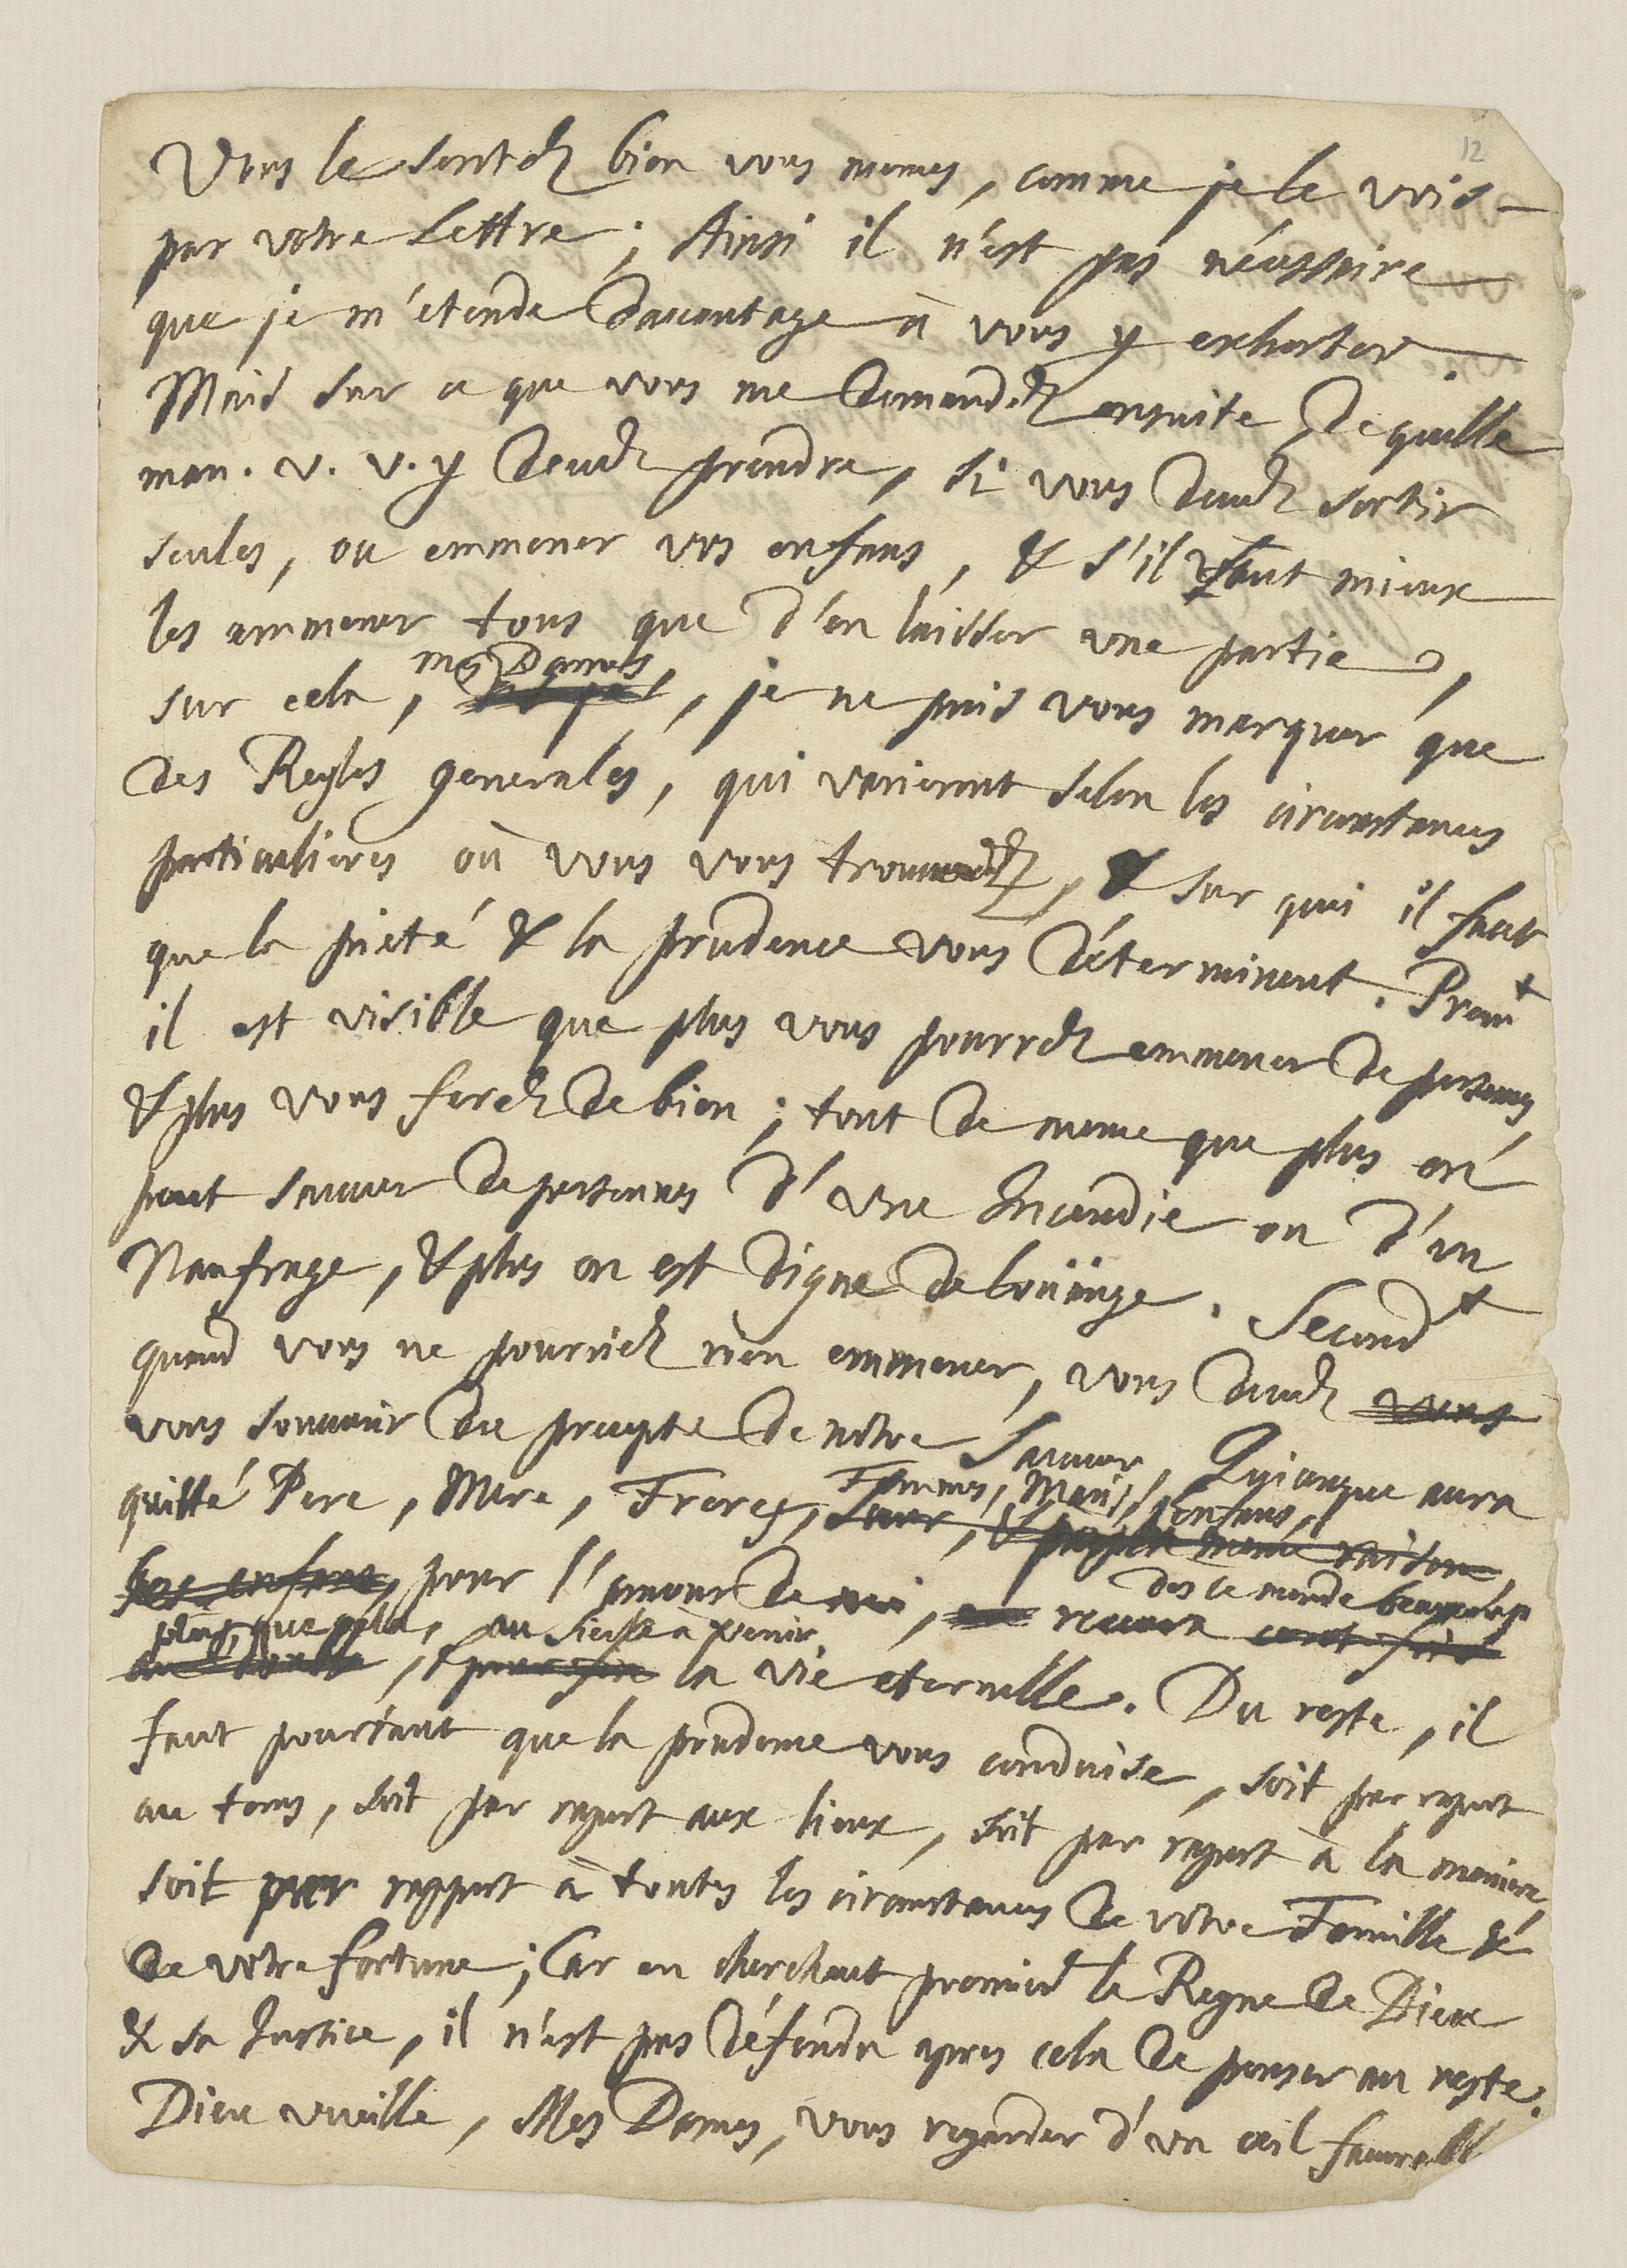 12
Vous le sentéz bien vous memes, comme je le vois
par votre Lettre; Ainsi il n'est pas nécessaire
que je m'étende davantage à vous y exhorter.
Mais sur ce que vous me demandéz ensuite, de quelle
man. v. v. y devéz prendre, si vous devéz sortir
seules, ou emmener vos enfans, & s'il vaut mieux
les emmener tous que d'en laisser une partie,
mes Dames,
sur cela, je ne puis vous marquer que
des Regles generales, qui varieront selon les circonstances
particulieres où vous vous trouveréz, & sur quoi il faut
que la pieté & la prudence vous déterminent. Premt
il est visible que plus vous pourréz emmener de personnes,
& plus vous feréz de bien; tout de meme que plus on
peut sauver de personnes d'une Incendie ou d'un
Naufrage, & plus on est digne de loüange. Secondt
quand vous ne pourriéz rien emmener, vous devéz vous
vous souvenir du precepte de nôtre Sauveur, Quiconque aura
Femmes, Maris, enfans,
quitté Pere, Mere, Freres, Soeur, & meme raison
ses enfans, pour l'amour de moi, recevra cent fois
dès ce monde beaucoup
plus que cela, au siecle à venir,
au double, & la vie eternelle. Du reste, il
faut pourtant que la prudence vous conduise, soit par raport
au tems, soit par raport aux lieux, soit par raport à la maniere,
soit par rapport à toutes les circonstances de vôtre Famille &
de vôtre fortune; Car en cherchant premier le Regne de Dieu
& sa Justice, il n'est pas défendu apres cela de penser au reste.
Dieu vueille, Mes Dames, vous regarder d'un oeil favorabl